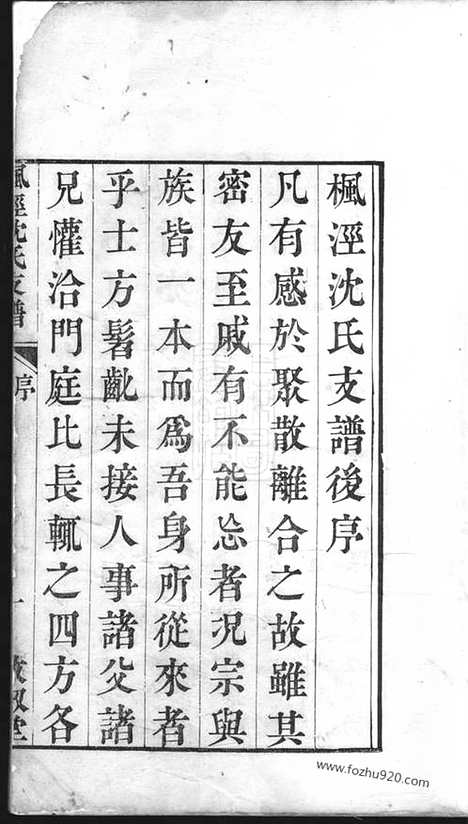 楓涇沈氏支譜後序
凡有感於聚散離合之故雖其
密友至戚有不能忘者況宗與
族皆一本而爲吾身所從來者
乎士方髫齔未接人事諸父諸
兄懽洽門庭比長輒之四方各
楓涇沈氏支譜
序
一
敘堂
www.fozhu920.com